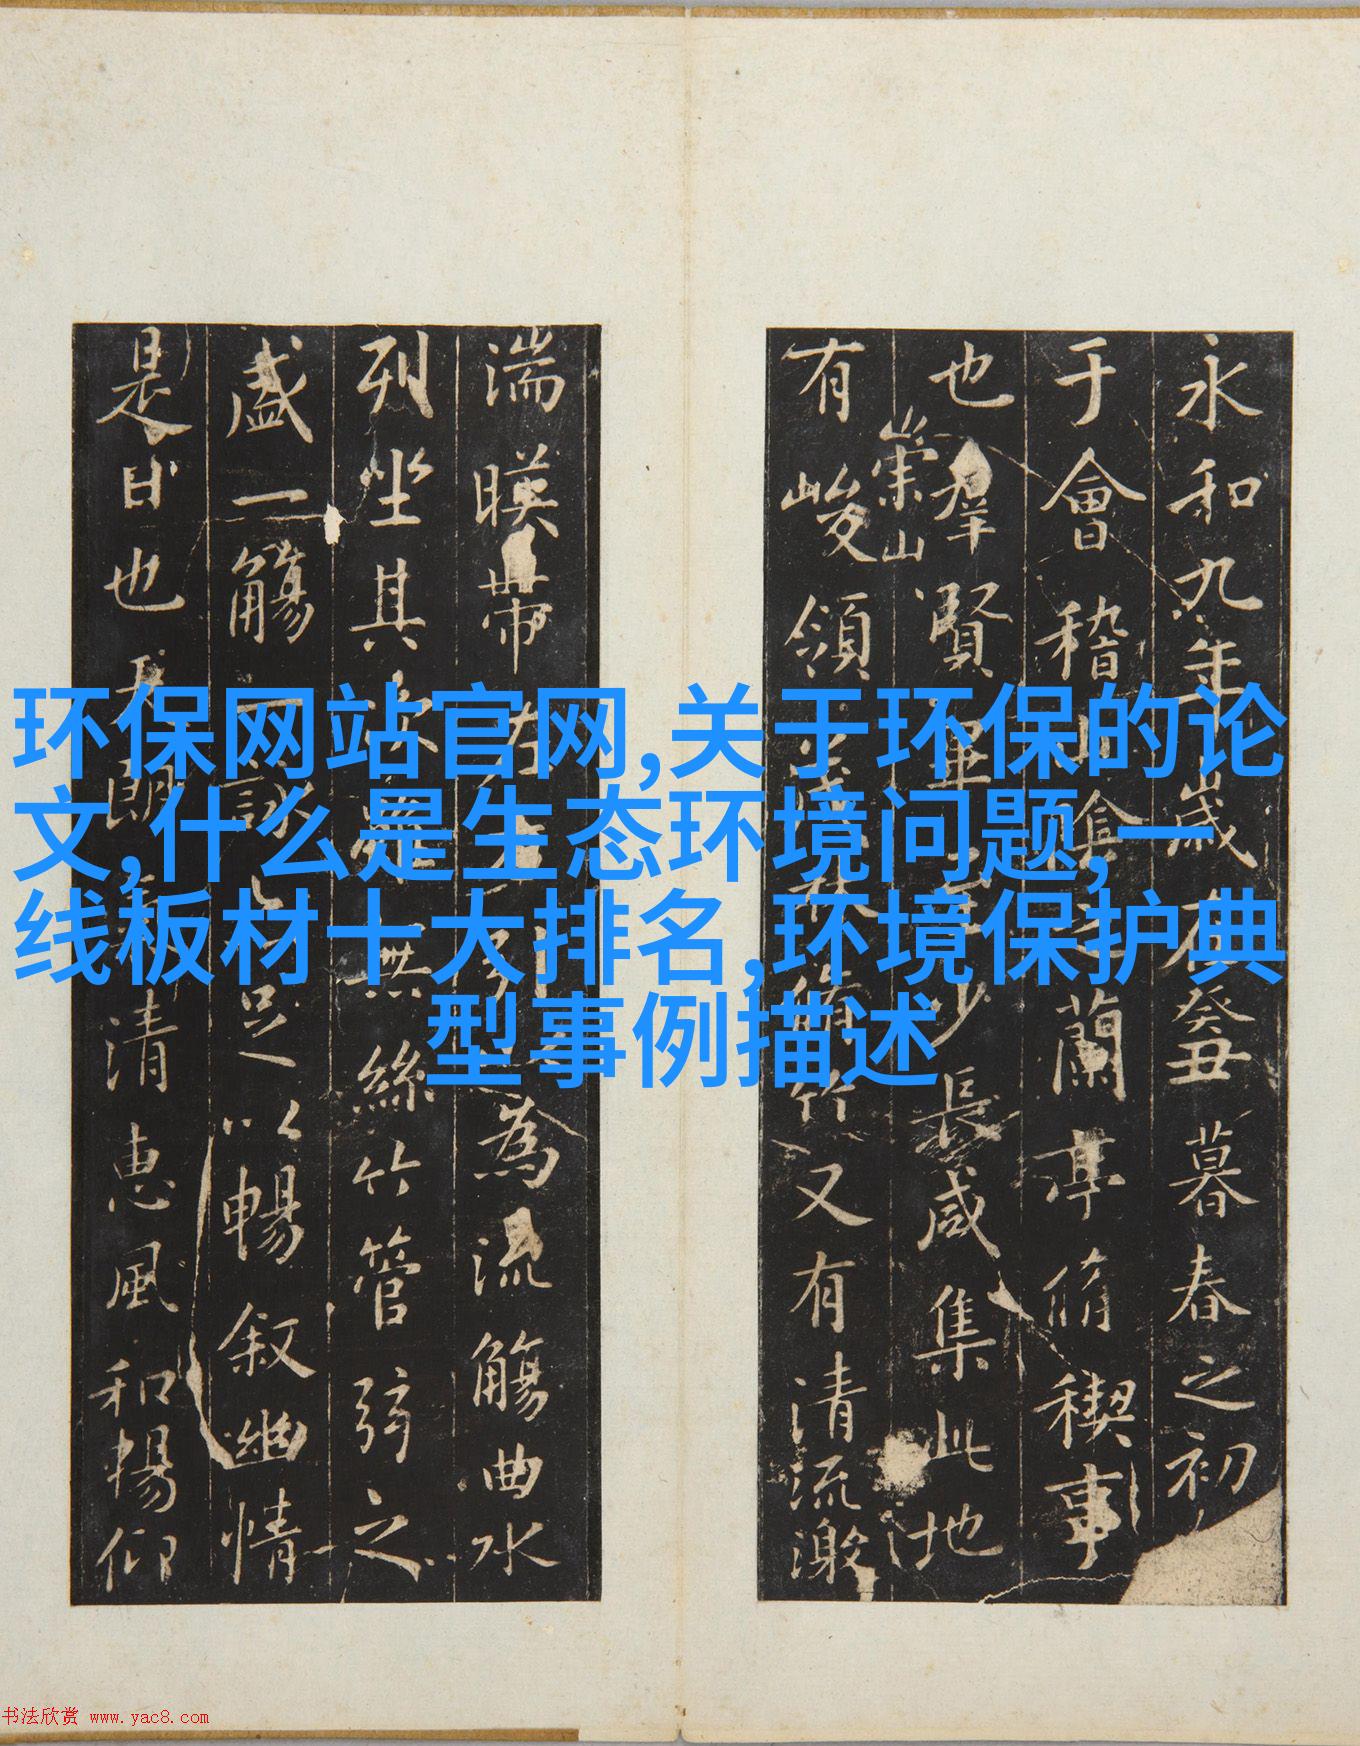 环保网站官网,关于环保的论
文,什么是生态环境问题,一
线板材十大排名,环境保护典
型事例描述
永和九年歲在癸丑暮春之初
于會稽山陰之蘭亭脩稧事
也羣賢畢至少長咸集此地
崇山
有峻領茂林脩竹又有清流激
湍暎帶左右引以為流觴曲水
列坐其次雖無絲竹管弦之
盛一觴一詠亦足以暢敘幽情
是日也天朗氣清惠風和暢仰
书法欣赏 www.yac8.com